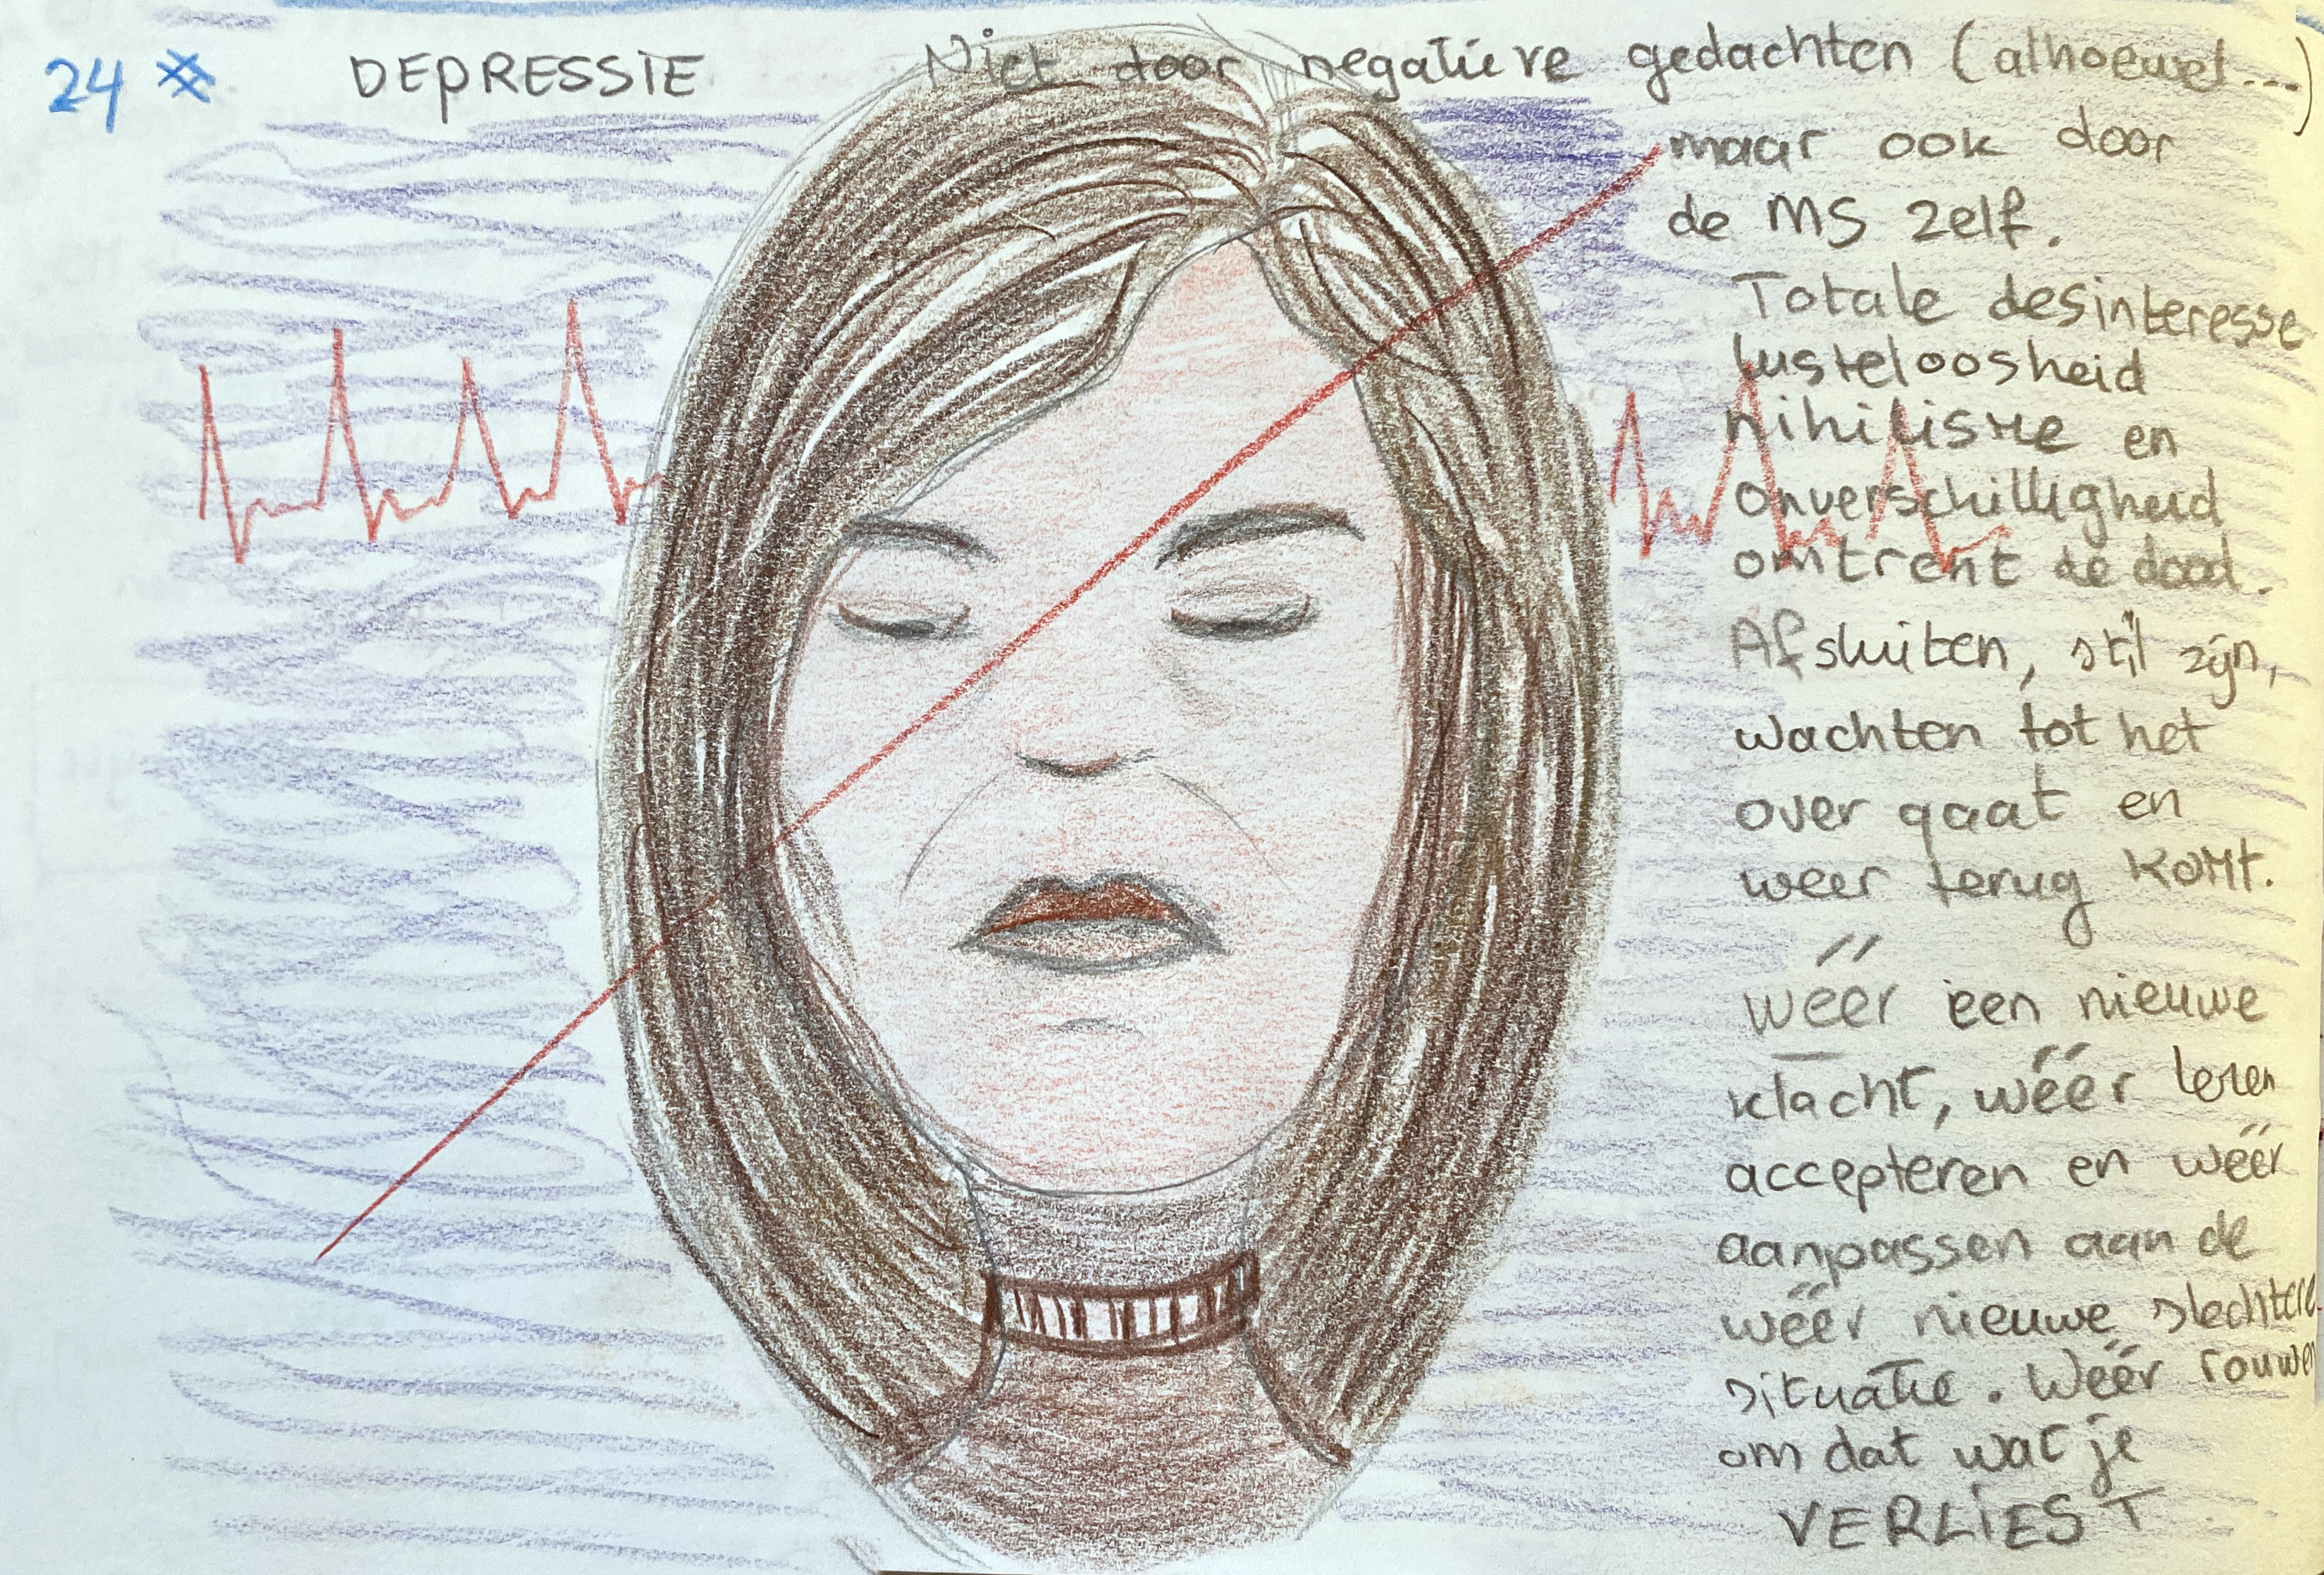 24 * DEPRESSIE Niet door negatieve gedachten (alhoewel...)
maar ook door
de MS zelf.
Totale desinteresse
lusteloosheid
nihilisme en
onverschilligheid
omtrent de dood.
Afsluiten, stil zijn,
wachten tot het
over gaat en
weer terug komt.
wéér een nieuwe
klacht, wéér leren
accepteren en wéér
aanpassen aan de
wéér nieuwe slechtere
situatie. Wéér rouwen
om dat wat je
VERLIEST